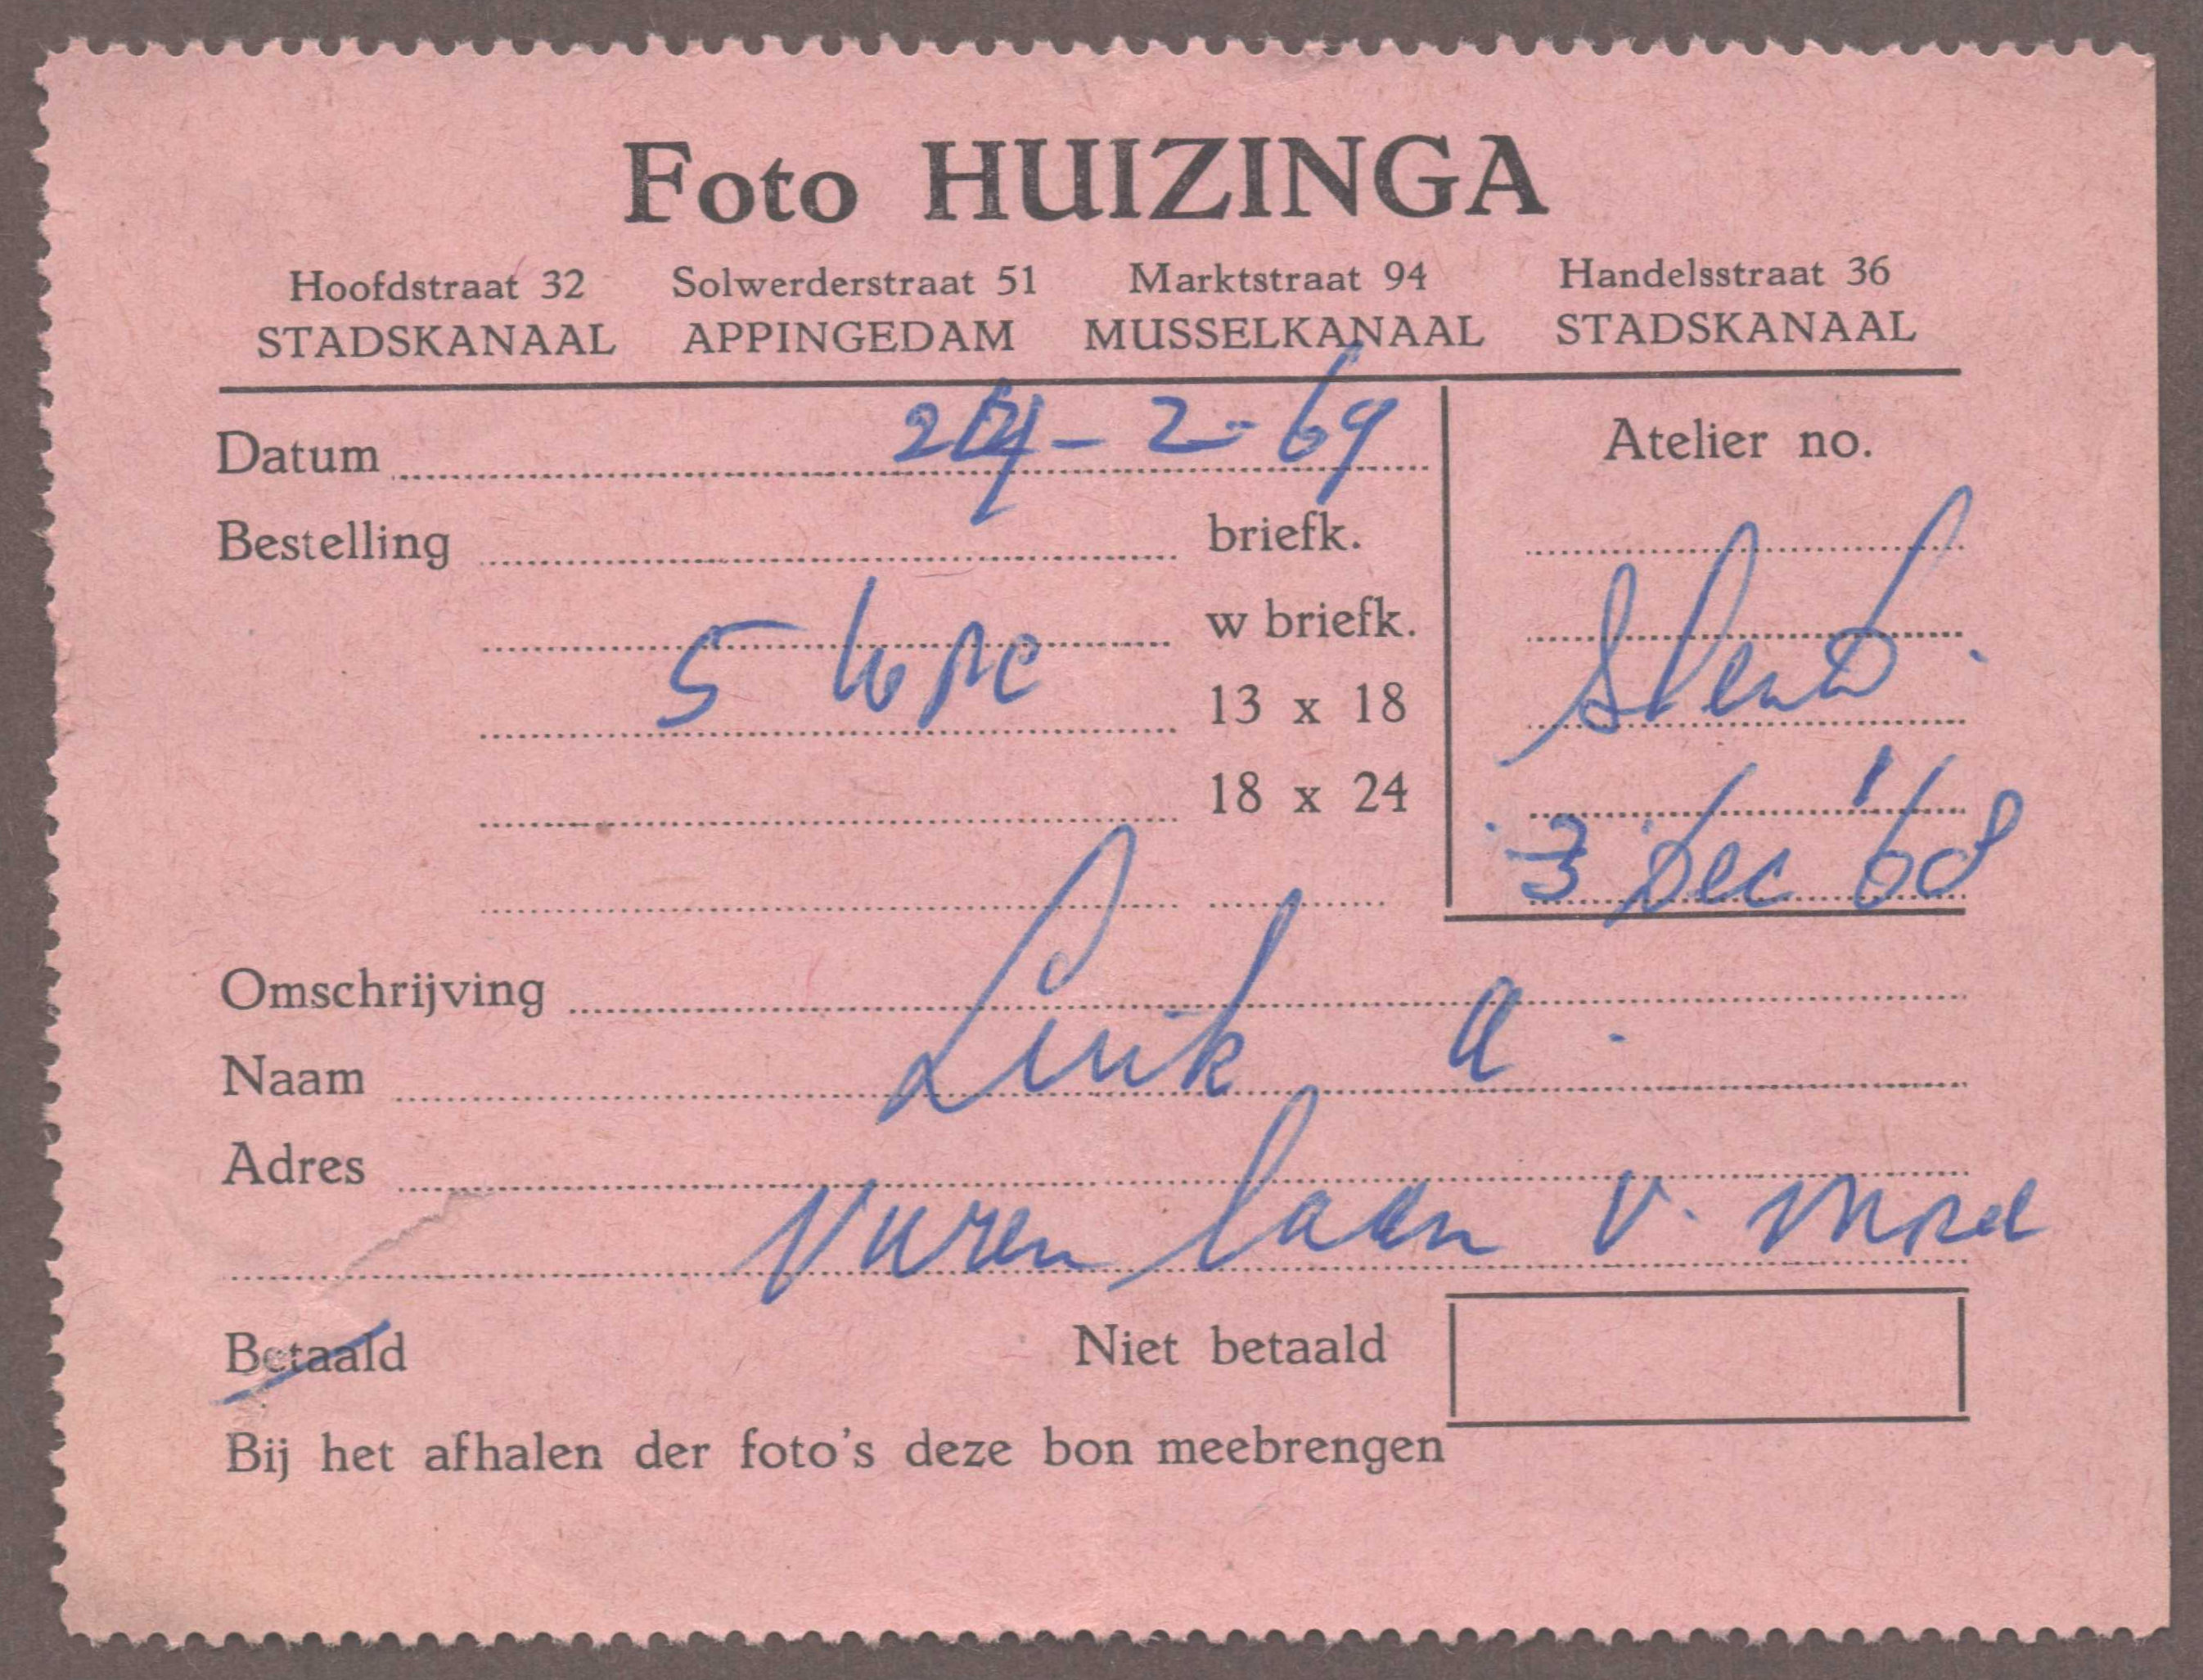 Foto HUIZINGA
Hoofdstraat 32 Solwerderstraat 51 Marktstraat 94 Handelsstraat 36
STADSKANAAL APPINGEDAM MUSSELKANAAL STADSKANAAL
Datum 24-2-69
Atelier no.
Bestelling briefk.
5 w briefk.
13 x 18
18 x 24
3 Dec '68
Omschrijving
Naam Luik A.
Adres
Vurenlaan
Betaald Niet betaald
Bij het afhalen der foto's deze bon meebrengen